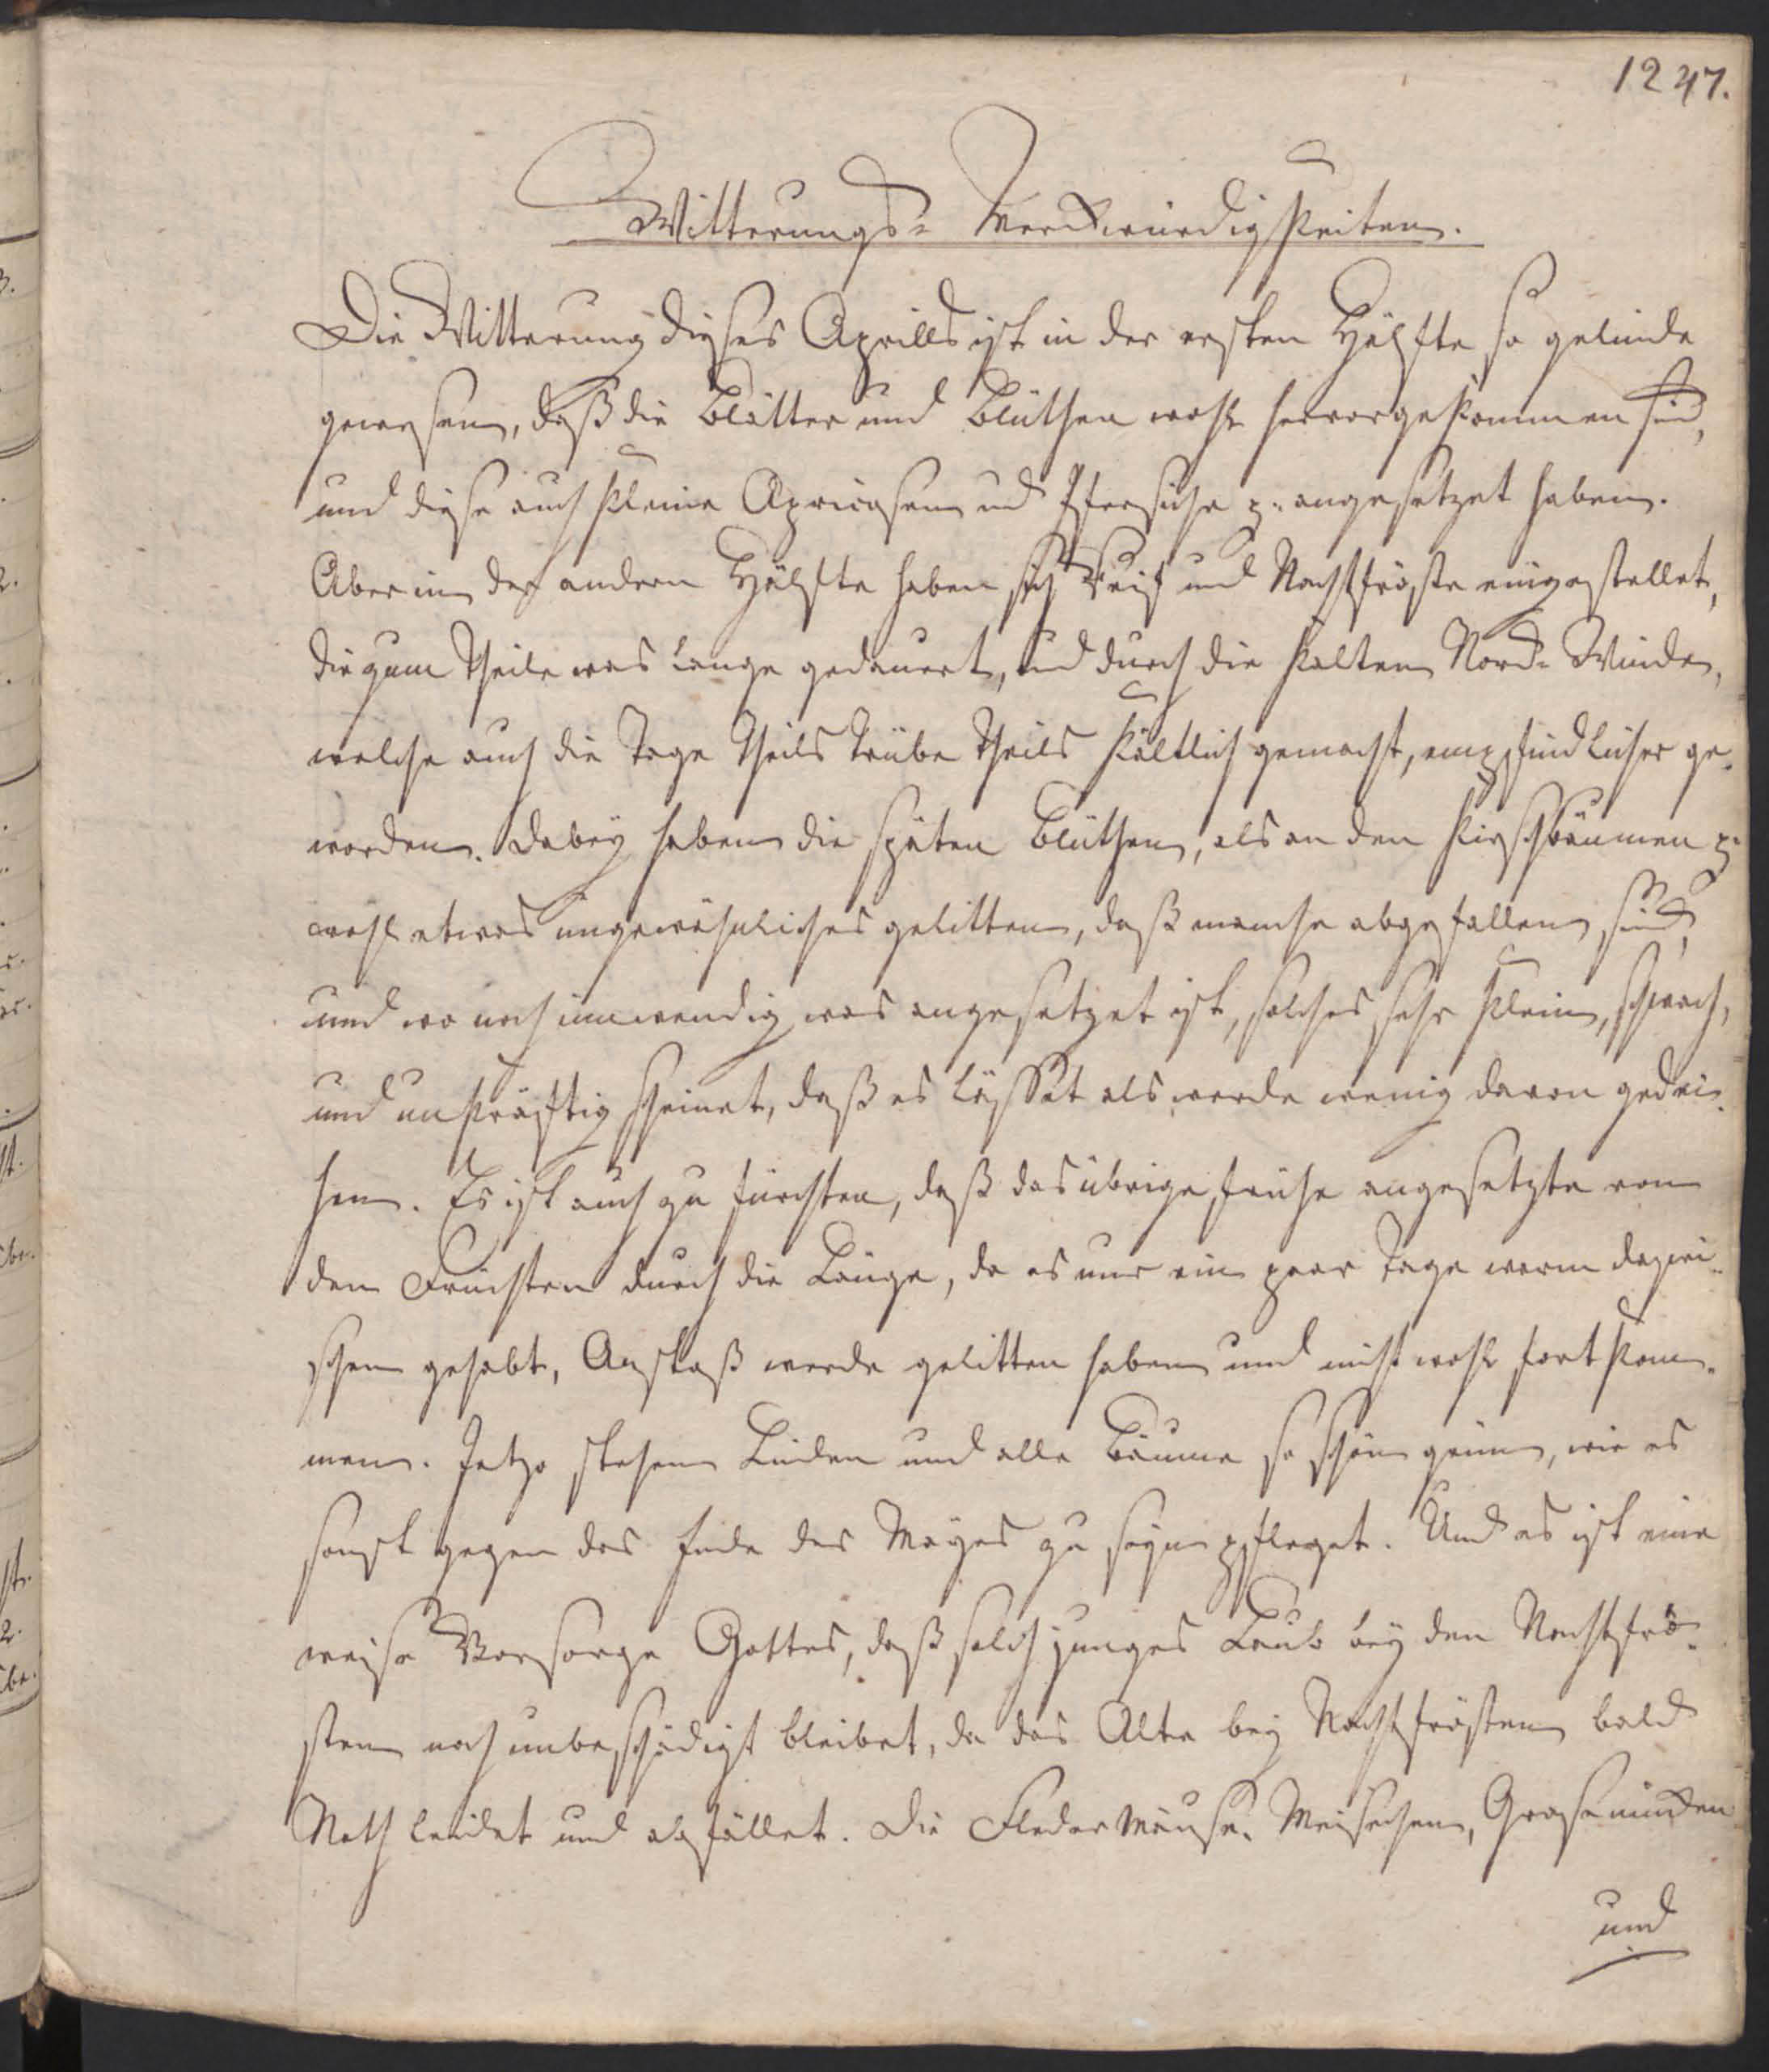 1247.
Witterungs- Merckwürdigkeiten.
Die Witterung dieses Aprills ist in der ersten Hälfte so gelinde
gewesen, daß die Blätter und Blüthen wohl hervorgekommen sind,
und diese auch kleine Apricosen und Pfersiche p. angesetzet haben.
Aber in der andern Hälfte haben sich Reif und Nachtfröste eingestellet,
die zum Theile was lange gedauert, und durch die kalten Nord-Winde,
welche auch die Tage theils trübe theils kältlich gemacht, empfindlicher ge-
worden. Dabey haben die späten Blüthen, als an den Kirschbäumen p.
wohl etwas ungewöhnliches gelitten, daß manche abgefallen sind,
und wo noch inwendig was angesetzet ist, solches sehr klein, schwach,
und unkräftig scheinet, daß es lässet als werde wenig davon gedei-
hen. Es ist auch zu fürchten, daß das übrige frühe angesetzte von
den Früchten durch die Länge, da es nur ein paar Tage warm dazwi-
schen gehabt, Anstoß werde gelitten haben und nicht wohl fortkom-
men. Jetzo stehen Linden und alle Bäume so schön grün, wie es
sonst gegen das Ende des Mayes zu seyn pfleget. Und es ist eine
weise Vorsorge Gottes, daß solch junges Laub bey den Nachtfrö-
sten noch unbeschädigt bleibet, da das Alte bey Nachtfrösten bald
Noth leidet und abfället. Die Fledermäuse, Meischen, Grasemücken
und